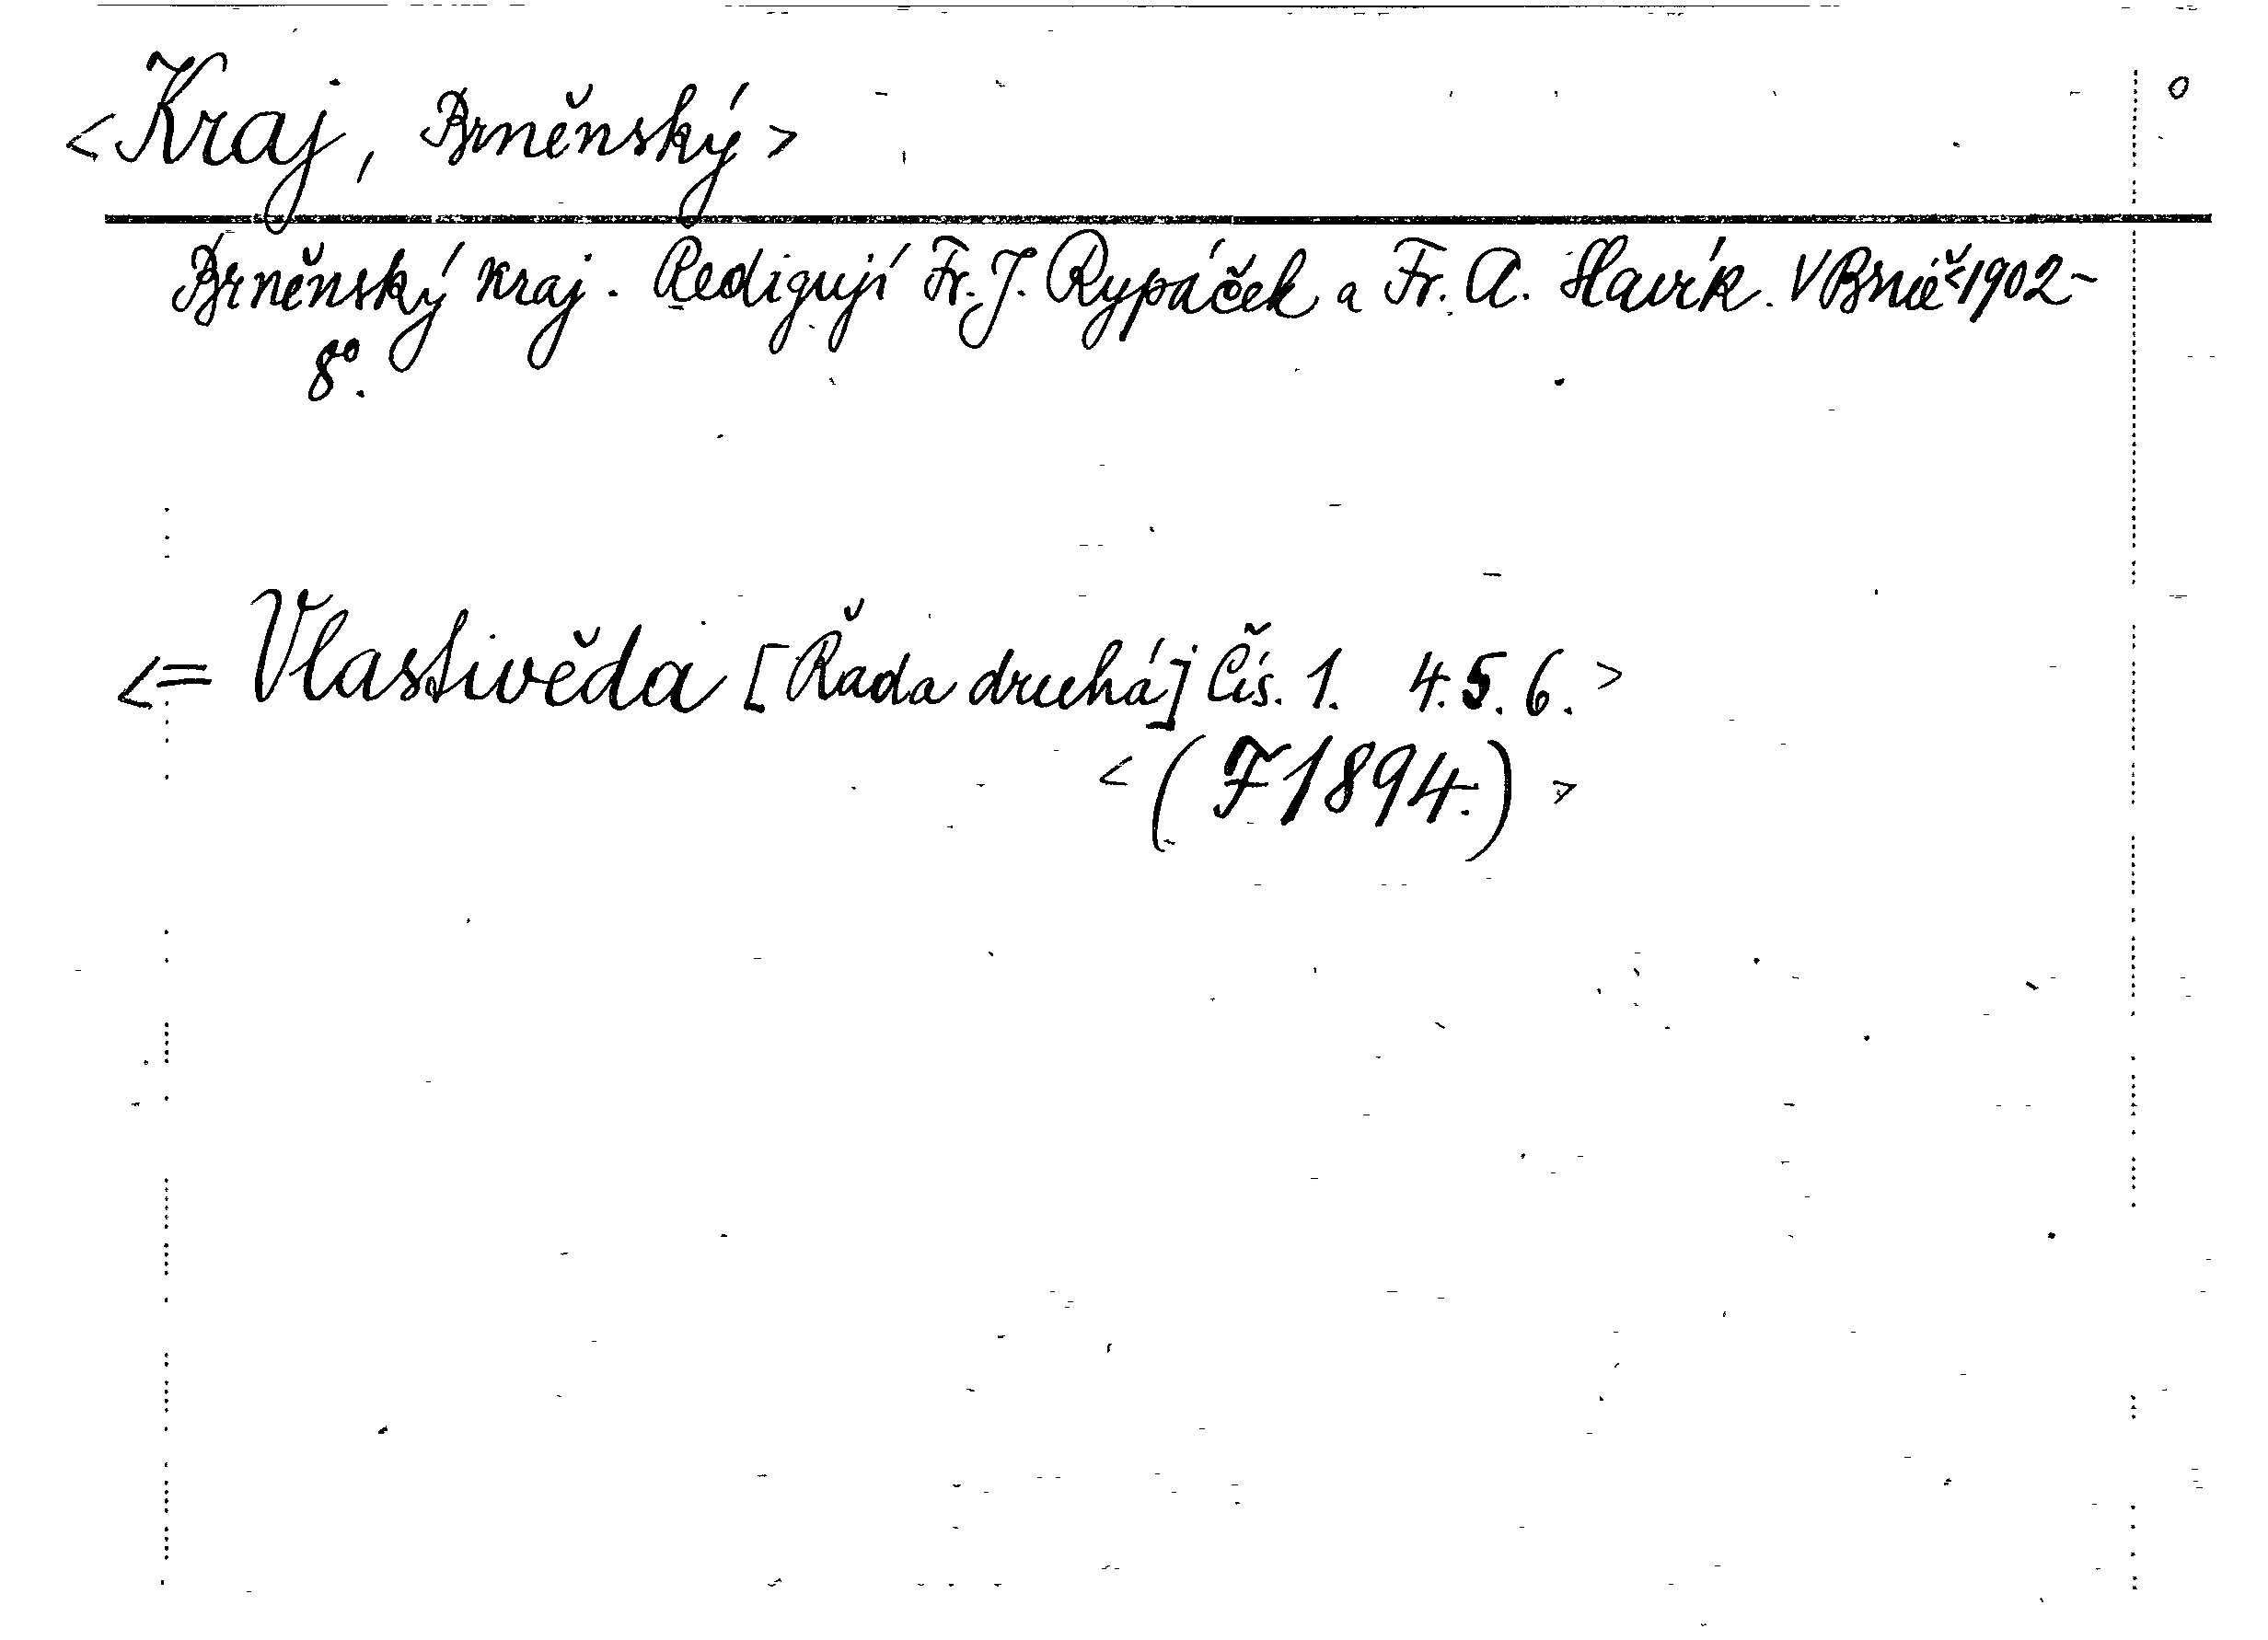 <Kraj, Brněnský> o
Brněnský kraj. Redigují Fr. J. Rypáček a Fr. A. Slavík. V Brně <1902-
8º.
<= Vlastivěda [Řada druhá] Čís. 1. 4. 5. 6.>
<(F 1894.)>